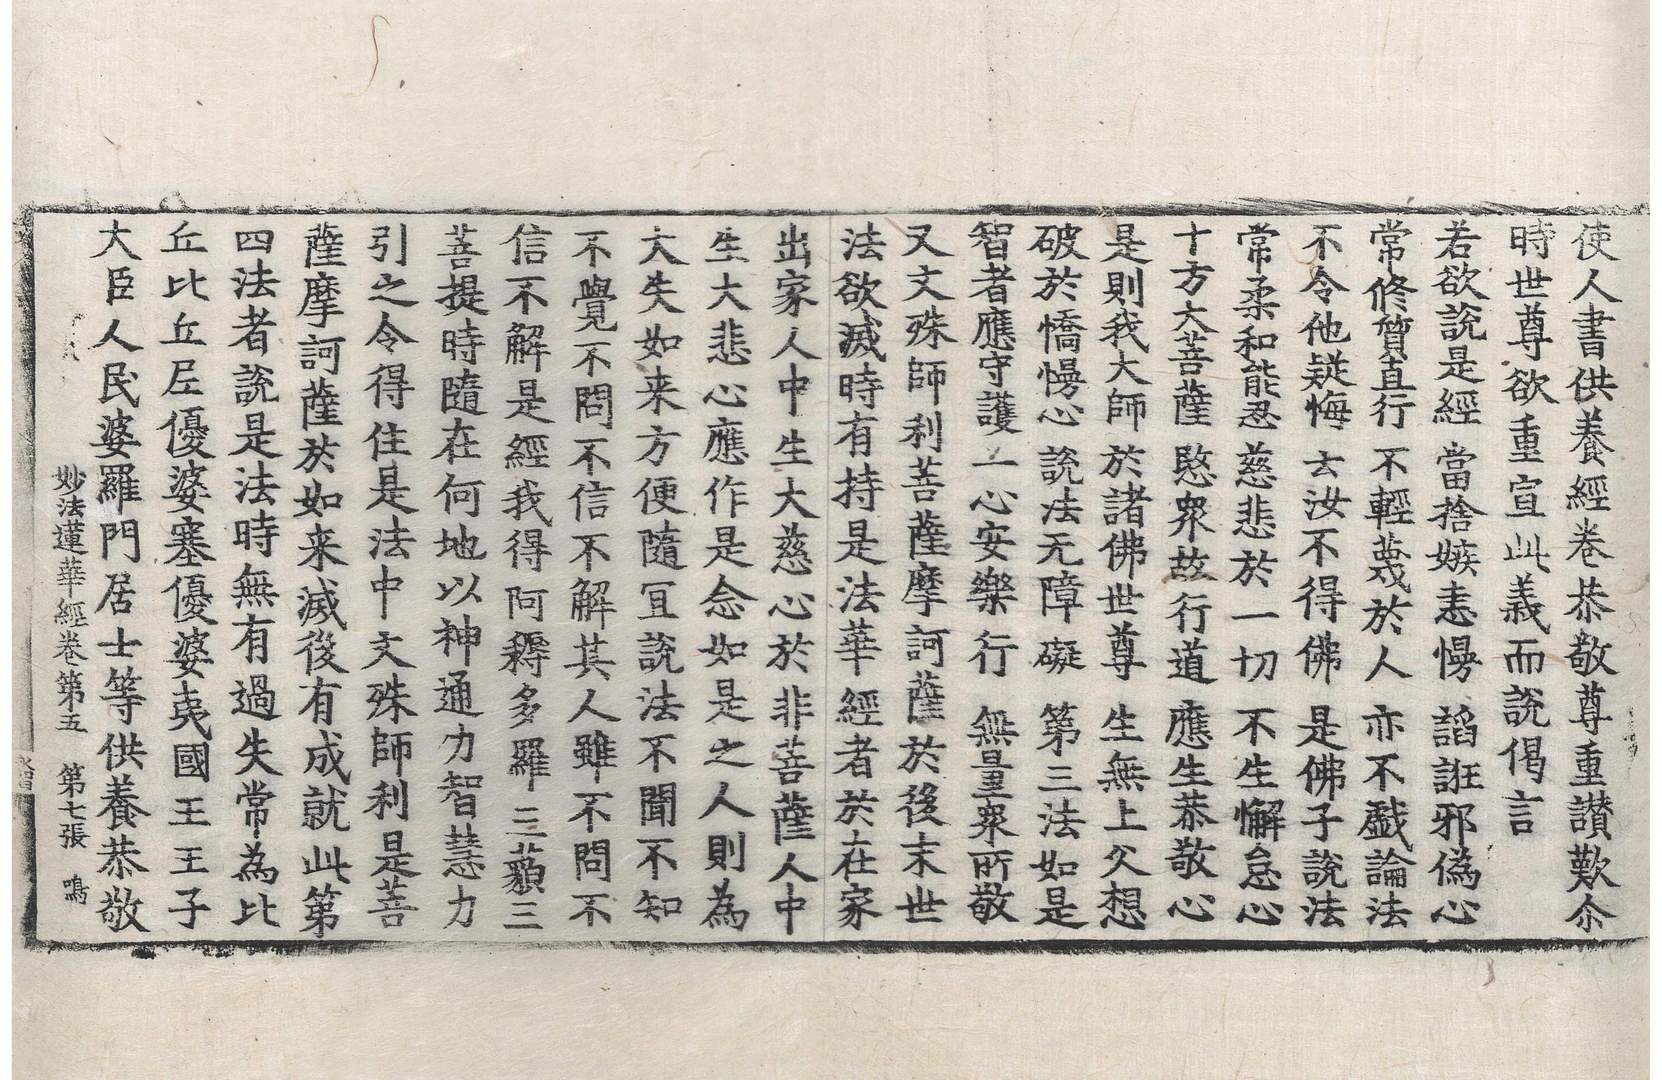 使人書供養經卷恭敬尊重讃歎尒
時世尊欲重宣此義而説偈言
若欲説是經 當捨嫉恚慢 諂誑邪偽心
常修質直行 不輕蔑於人 亦不戱論法
不令他疑悔 云汝不得佛 是佛子説法
常柔和能忍 慈悲於一切 不生懈怠心
十方大菩薩 愍衆故行道 應生恭敬心
是則我大師 於諸佛世尊 生無上父想
破於憍慢心 説法无障礙 第三法如是
智者應守護 一心安樂行 無量衆所敬
又文殊師利菩薩摩訶薩於後末世
法欲滅時有持是法華經者於在家
出家人中生大慈心於非菩薩人中
生大悲心應作是念如是之人則為
大失如来方便隨冝説法不聞不知
不覺不問不信不解其人雖不問不
信不解是經我得阿耨多羅三藐三
菩提時隨在何地以神通力智慧力
引之令得住是法中文殊師利是菩
薩摩訶薩於如来滅後有成就此第
四法者説是法時無有過失常為比
丘比丘尼優婆塞優婆夷國王王子
大臣人民婆羅門居士等供養恭敬
妙法蓮華經卷第五 第七張 鳴